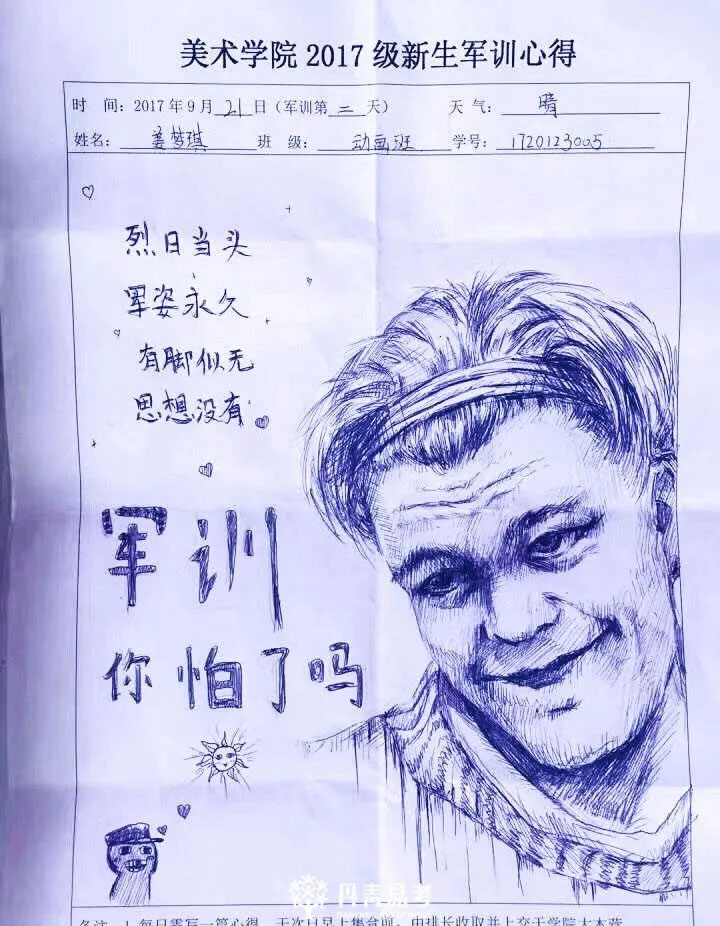 美术学院 2017 级新生军训心得
时 间：2017 年 9 月 21 日（军训第 二 天） 天 气： 晴
姓名： 姜梦琪 班 级： 动画班 学号： 1720123005
烈日当头
军姿永久
有脚似无
思想没有
军训
你怕了吗
丹青品考
备注：1.每日需写一篇心得，于次日早上集合前，由排长收取并上交于学院大本营